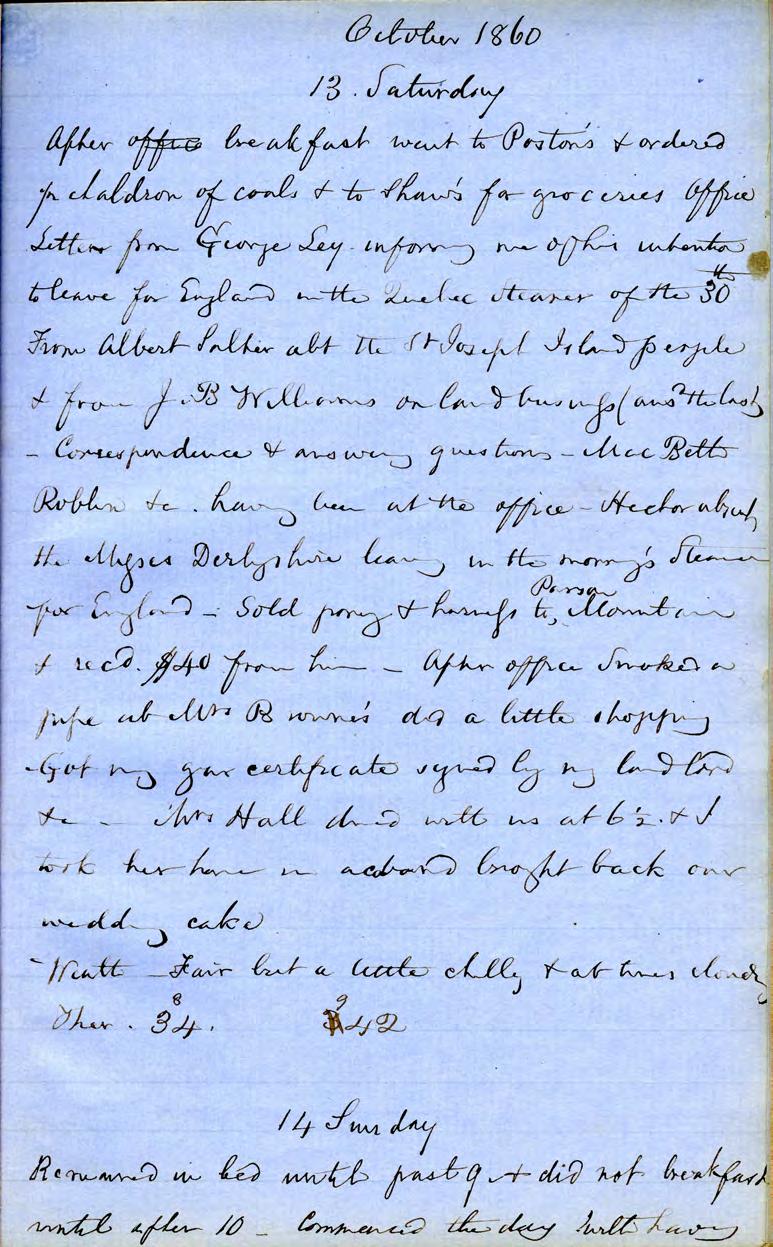 October 1860
13. Saturday
After office breakfast went to Poston's & ordered
chaldron of coals & to Shaw's for groceries Office
Letters from George Ley informing me of his intention
to leave for England in the Quebec Steamer of the 30th
From Albert Salter abt the St Joseph Island people
& from J. B Williams on land business (ansd the last)
- Correspondence & answering questions - Mac Beth
Roblin &c. having been at the office - Hector absent,
the Misses Derbyshire leaving in the morng's Steamer
for England - Sold pony & harness to Parson Mountain
& recd. $40 from him - After office Smoked a
pipe at Mrs Browne's did a little shopping
Got my gun certificate signed by my landlord
&c - Mrs Hall dined with us at 6½. & I
took her home in a cab and brought back our
wedding cake
Weath - Fair but a little chilly & at times cloudy
Ther. 8 34. 9 42
14 Sunday
Remained in bed until past 9 & did not breakfast
until after 10 - Commenced the day with having